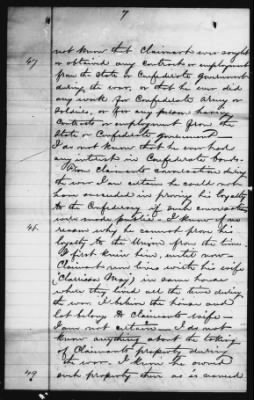 7
not know that Claimant ever sought
47 or obtained any contract or employment
from the State or Confederate government
during the war, or that he ever did
any work for Confederate Army or
Soldiers, or for any person having
contracts or employment from the
State or Confederate government
I do not know that he ever had
any interest in Confederate bonds.
From claimants conversation during
the war I am certain he could not
have succeeded in proving his loyalty
to the Confederacy if such conversation
were made public. I know of no
reason why he cannot prove his
loyalty to the Union from the time
I first knew him, until now
Claimant now lives with his wife
(Clarrissa May) in same house
where they lived all the time during
the war. I believe the house and
lot belong to claimants wife
I am not certain I do not
know anything about the taking
of Claimants property during
the war. I know he owned
49 such property then as is